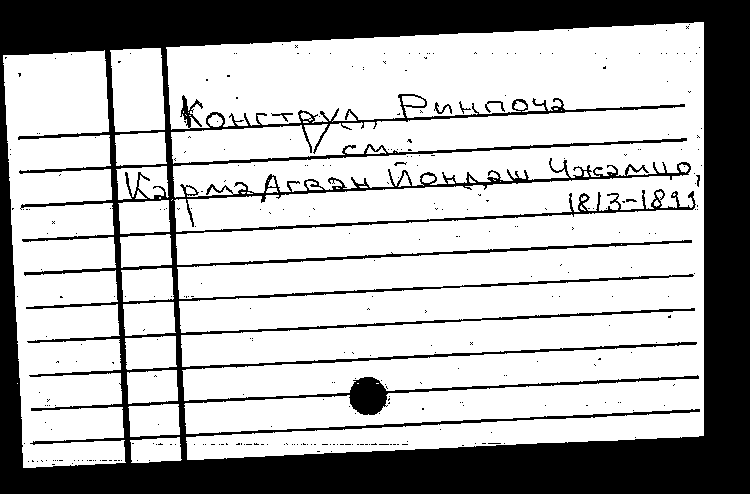 Конструл, Ринпоча
см.:
Карма Агван Йондан Чжамцо,
1813-1899